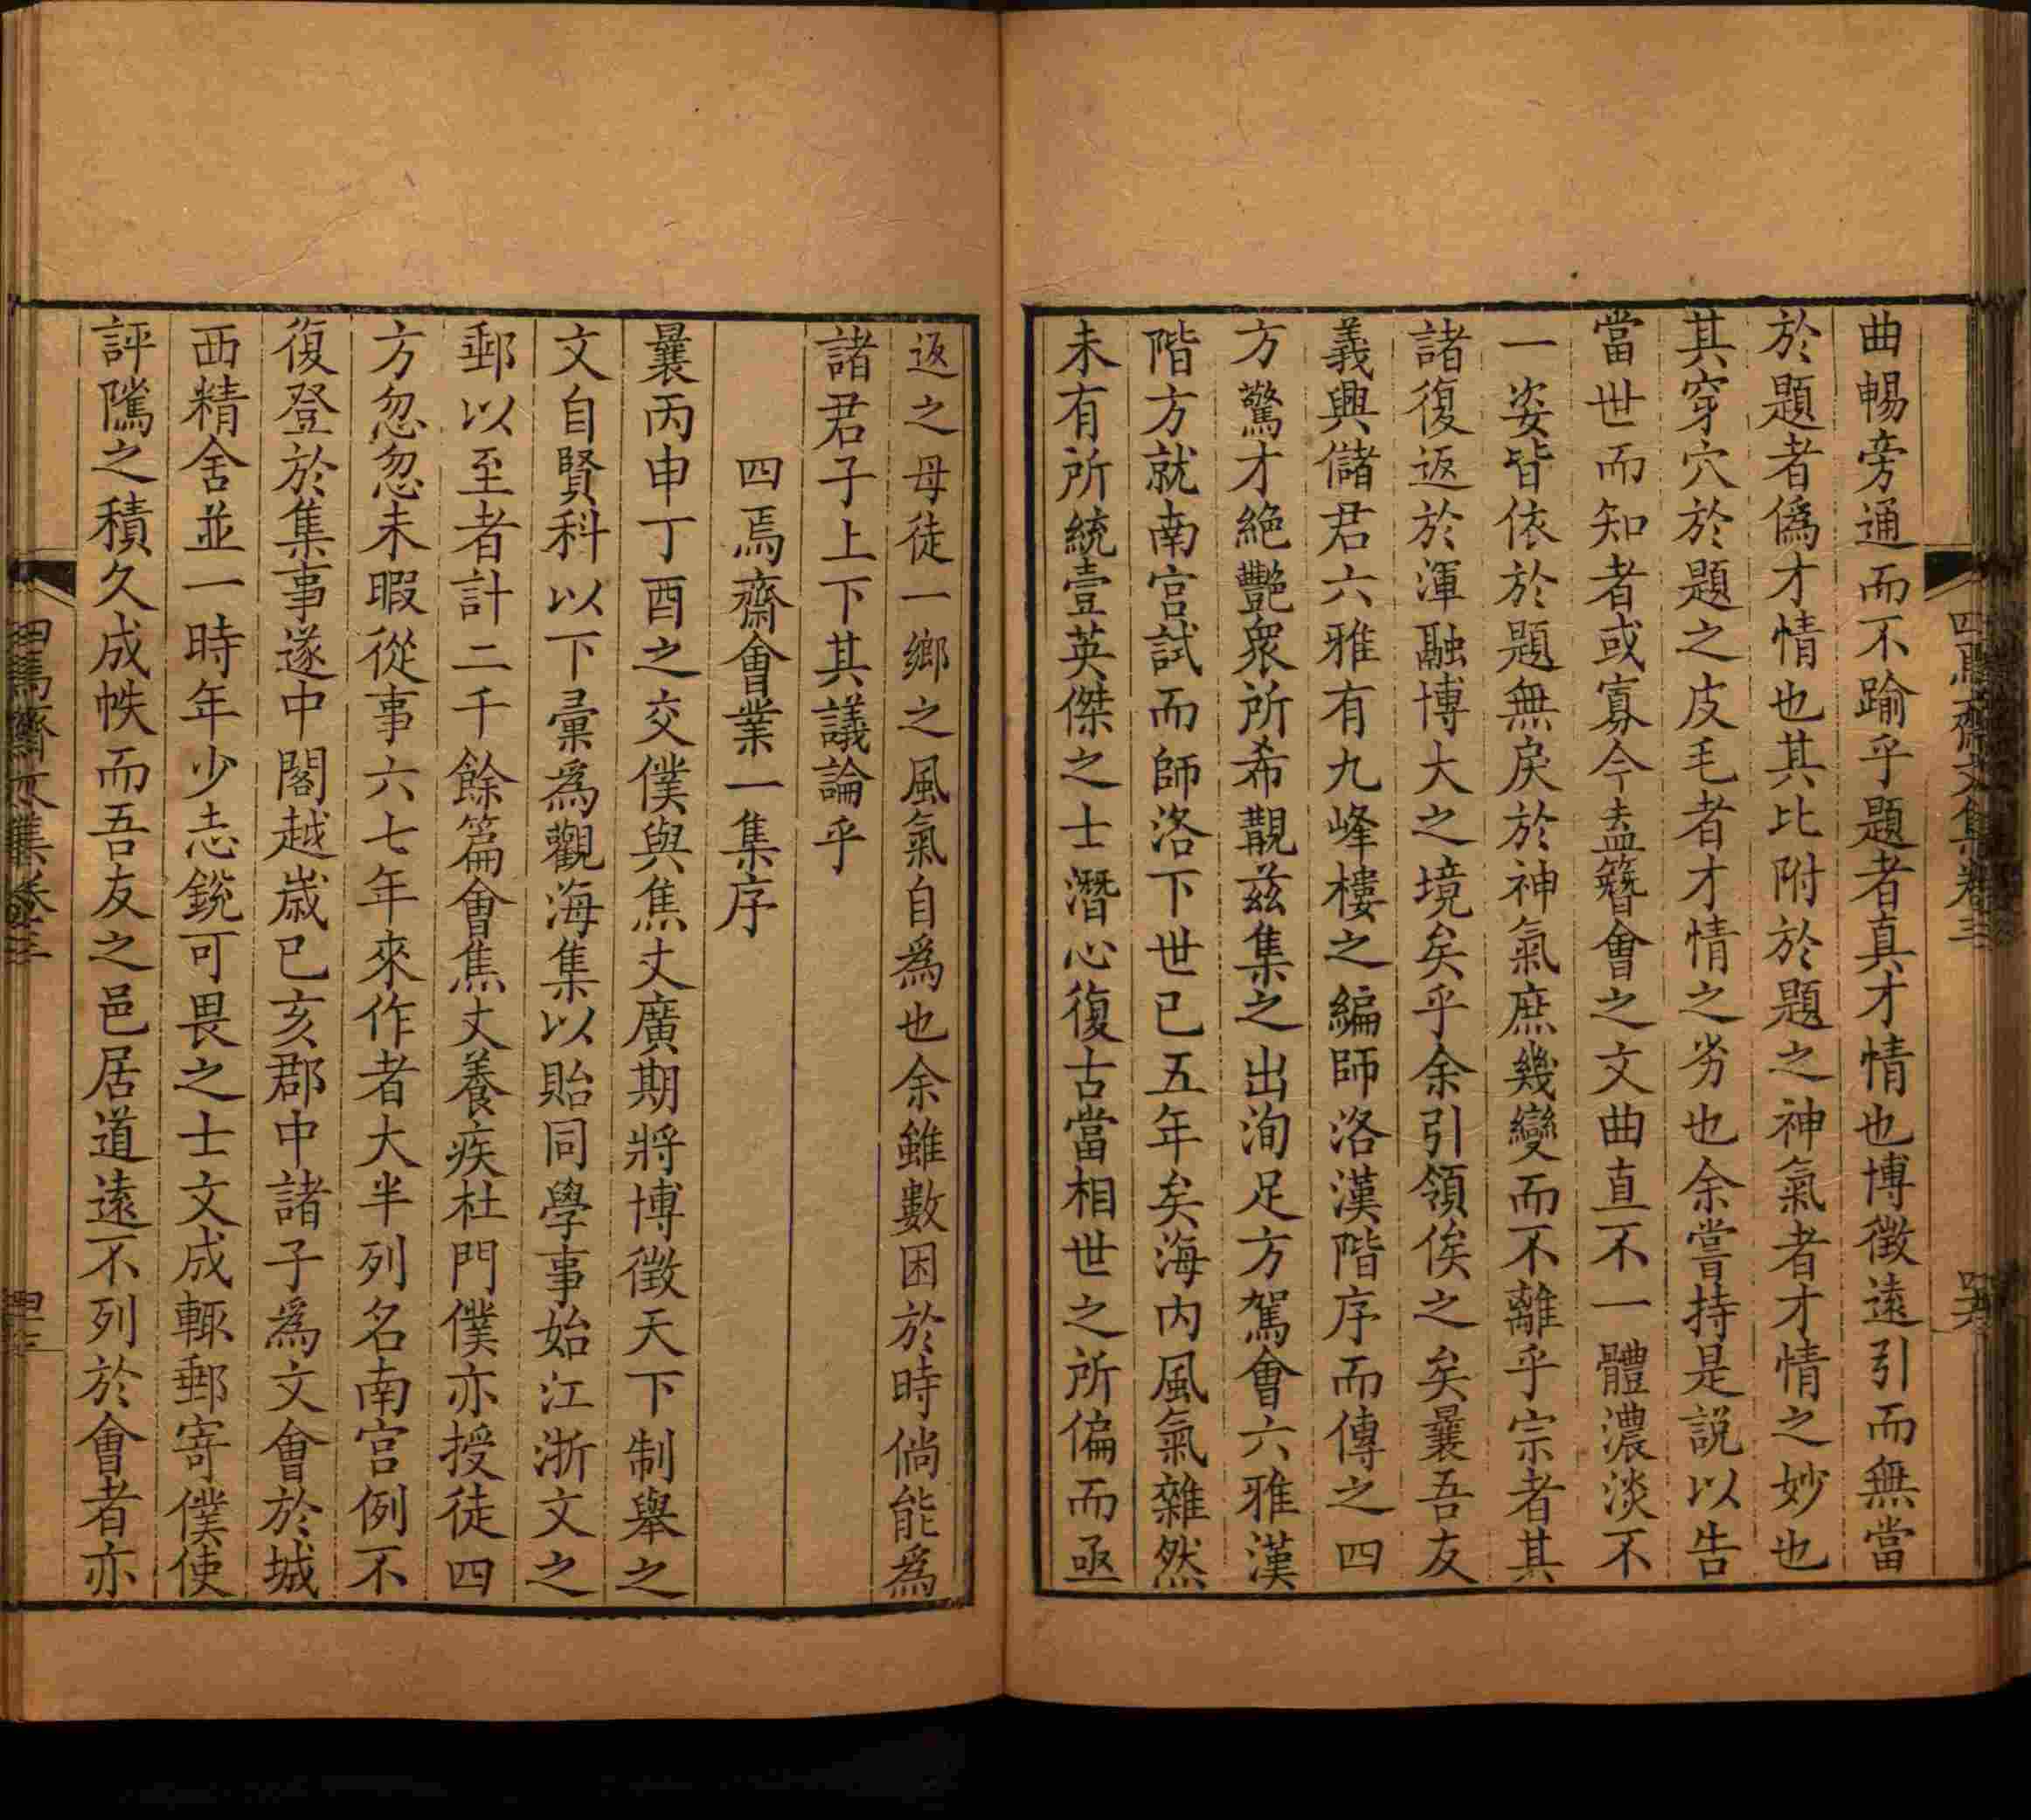 曲暢旁通而不踰乎題者真才情也博徵遠引而無當
於題者偽才情也其比附於題之神氣者才情之妙也
其穿穴於題之皮毛者才情之劣也余嘗持是說以告
當世而知者或寡今盍簪會之文曲直不一體濃淡不
一姿皆依於題無戾於神氣庶幾變而不離乎宗者其
諸復返於渾融博大之境矣乎余引領俟之矣曩吾友
義興儲君六雅有九峰樓之編師洛漢階序而傳之四
方驚才絕艷衆所希覯茲集之出洵足方駕會六雅漢
階方就南宮試而師洛下世已五年矣海內風氣雜然
未有所統壹英傑之士潛心復古當相世之所偏而亟
返之毋徒一鄉之風氣自為也余雖數困於時倘能為
諸君子上下其議論乎
四焉齋會業一集序
曩丙申丁酉之交僕與焦丈廣期將博徵天下制舉之
文自賢科以下彙為觀海集以貽同學事始江浙文之
郵以至者計二千餘篇會焦丈養疾杜門僕亦授徒四
方忽忽未暇從事六七年來作者大半列名南宮例不
復登於集事遂中閣越歲已亥郡中諸子為文會於城
西精舍並一時年少志銳可畏之士文成輒郵寄僕使
評隲之積久成帙而吾友之邑居道遠不列於會者亦
四焉齋文集卷三
四焉齋文集卷三